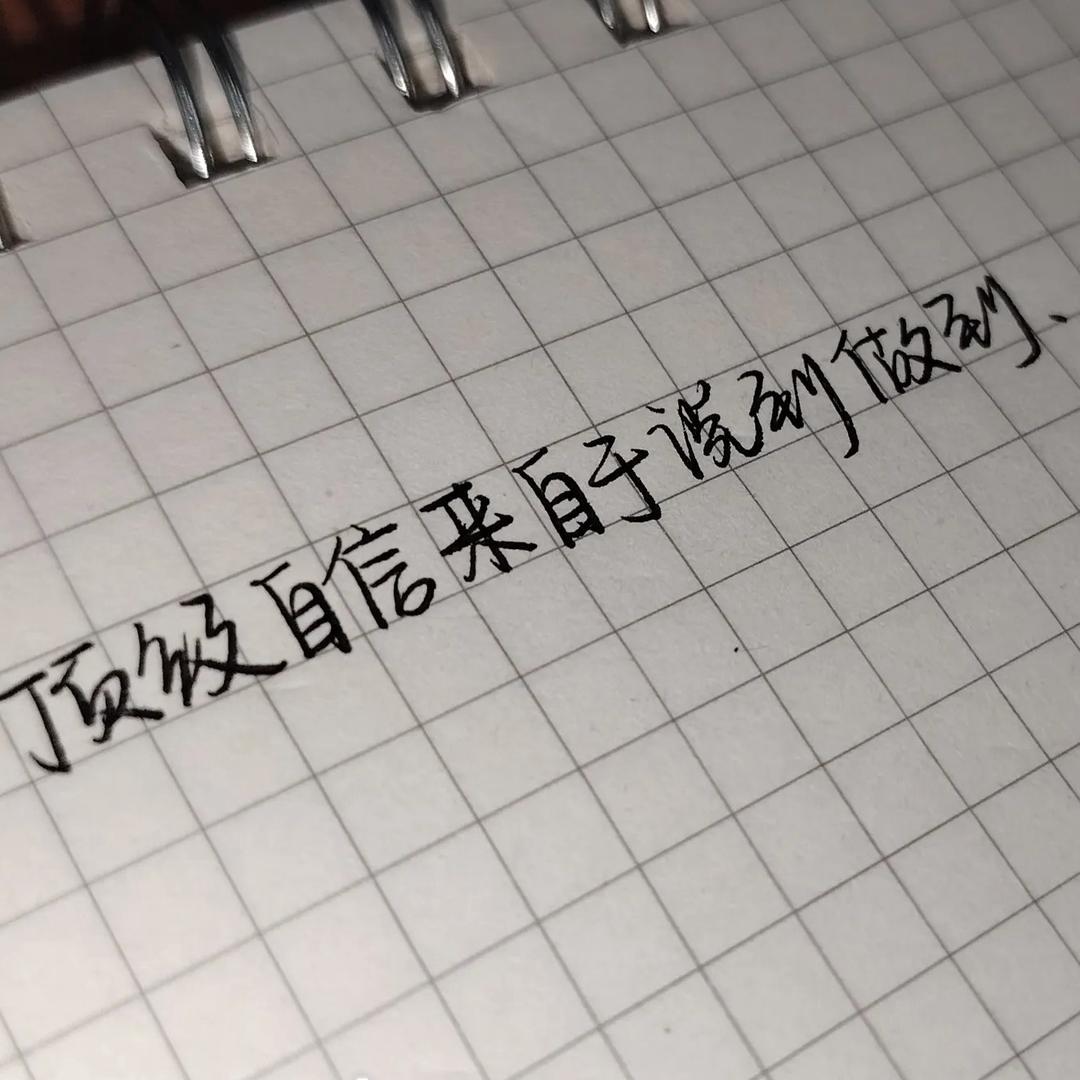 顶级自信来自于说到做到、